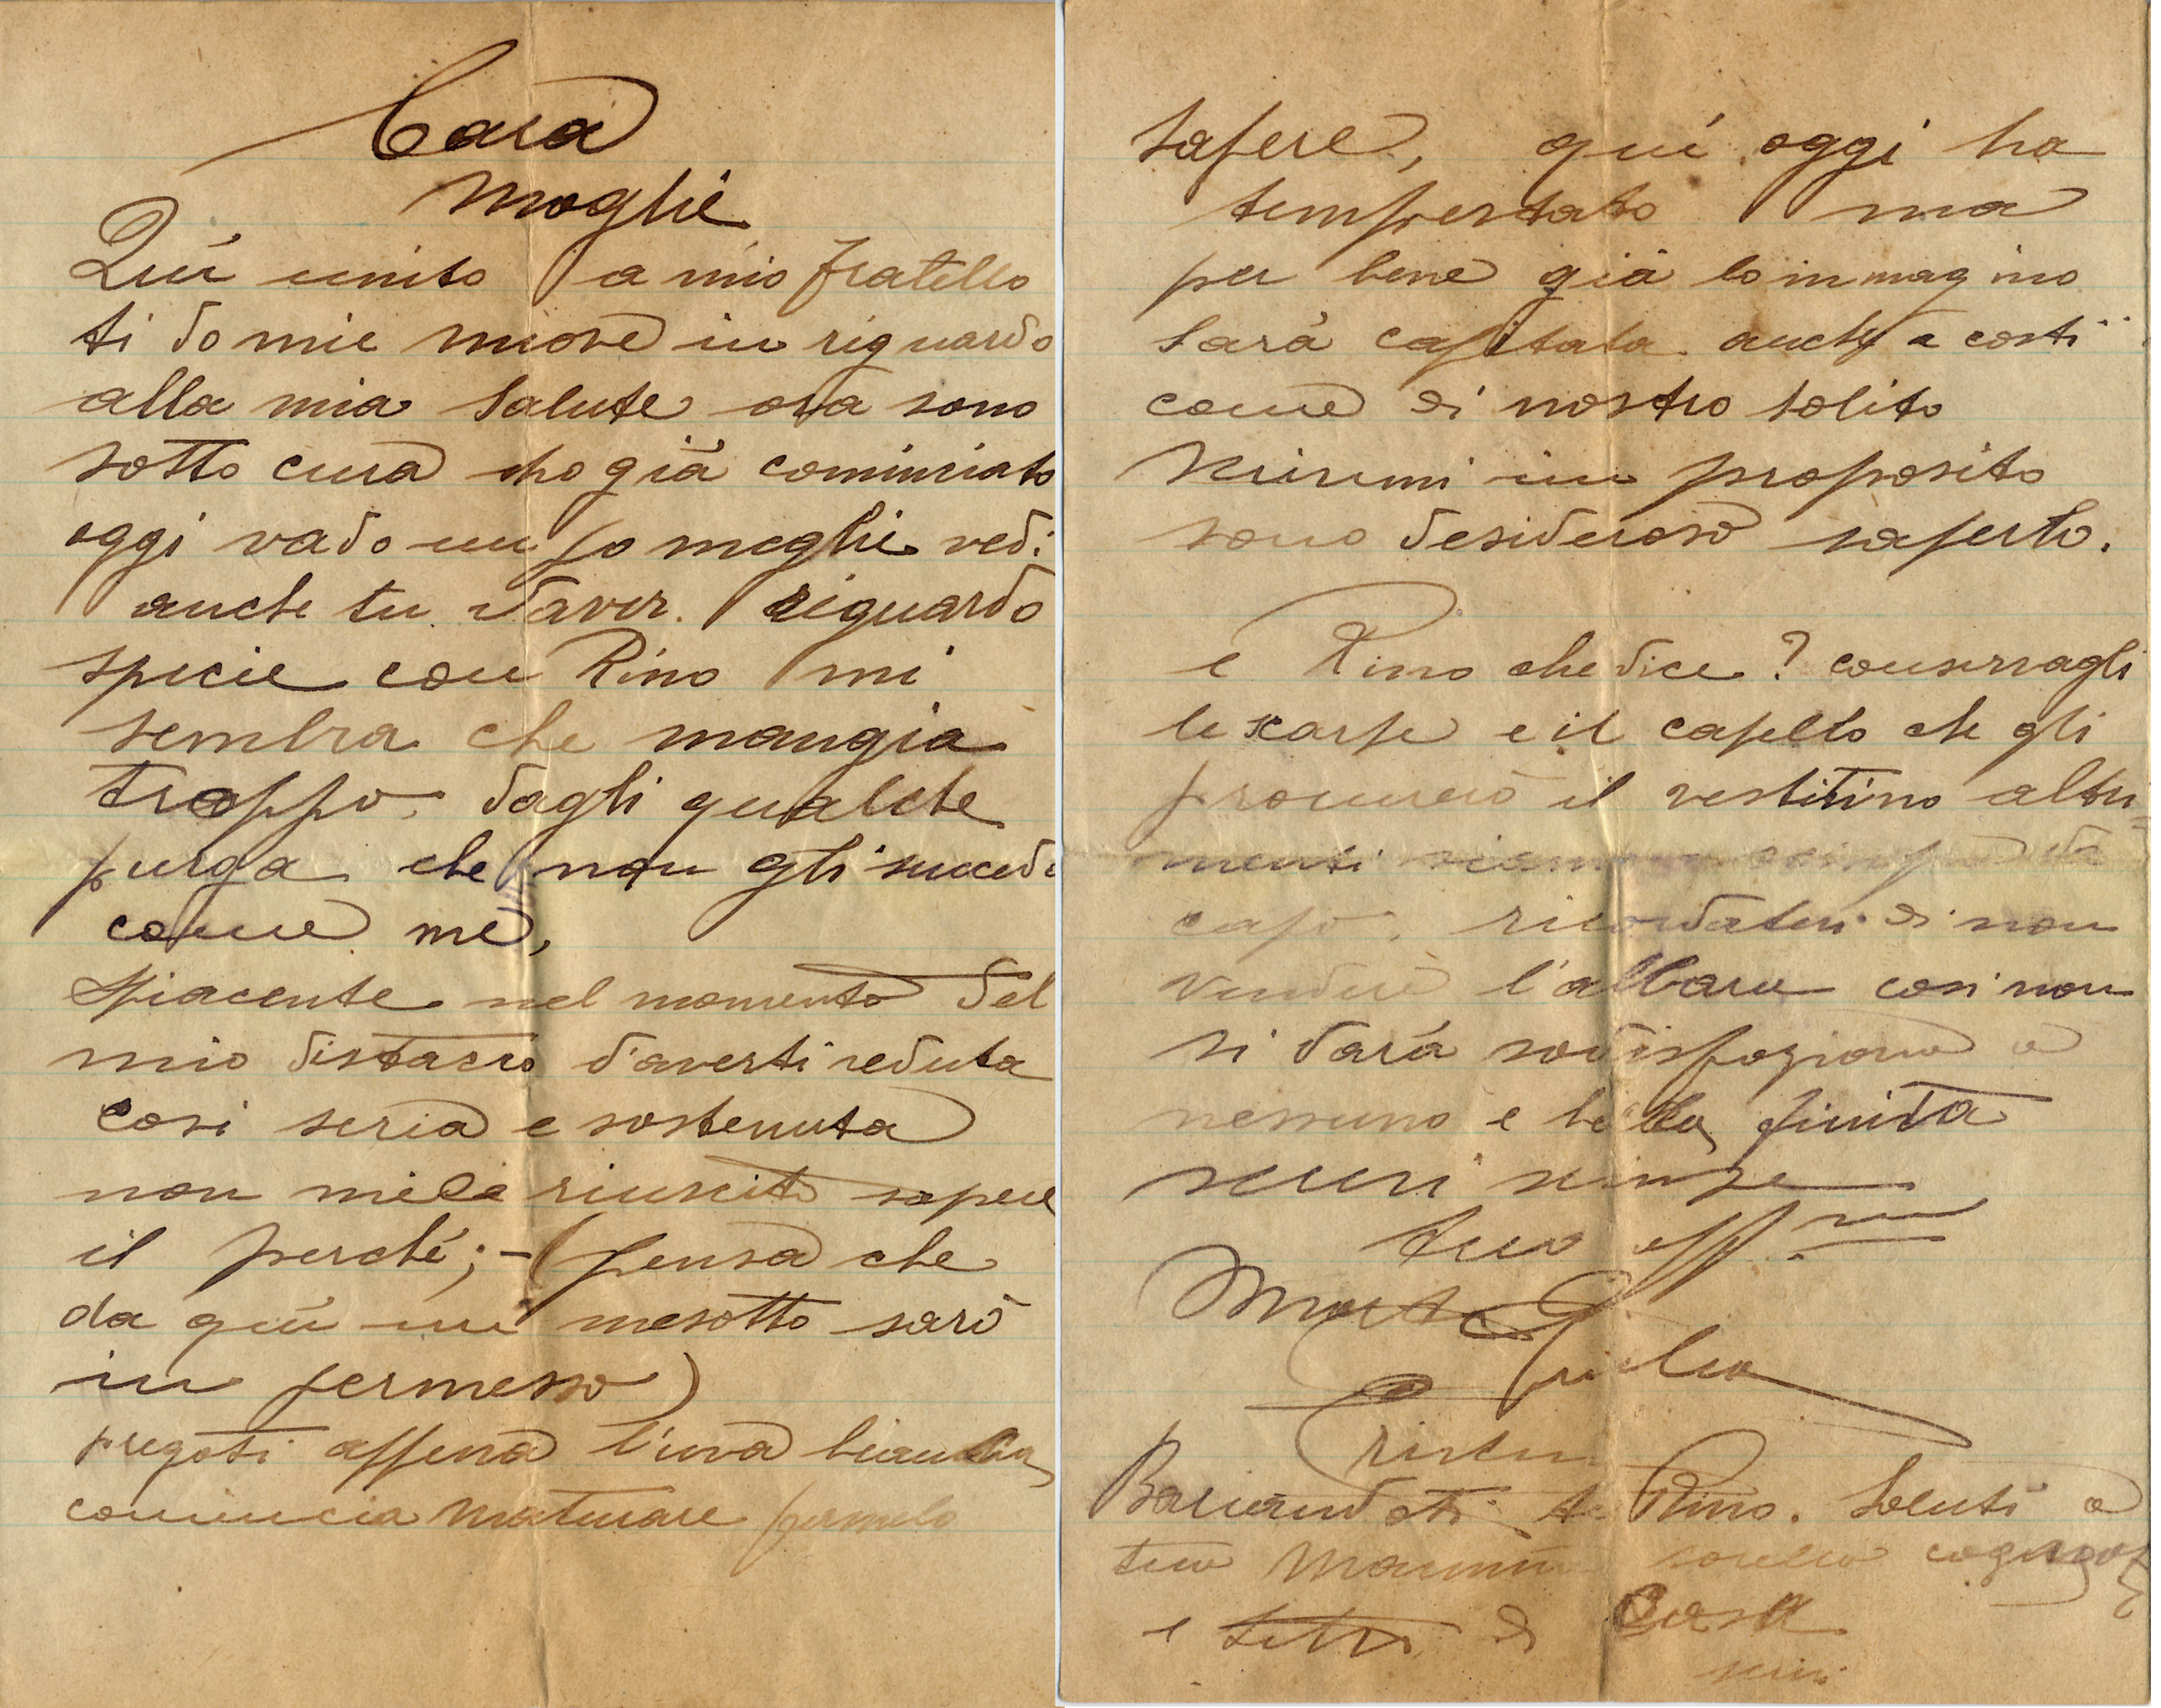 Cara
moglie
Quí unito a mio fratello
ti do mie nuove in riguardo
alla mia salute ora sono
sotto cura cho già cominciato
oggi vado un po meglie vedi
anche tu daver riguardo
specie con Pino mi
sembra che mangia
troppo. dagli qualche
purga che non gli succeda
come me,
Spiacente nel momento del
mio distacio d'averti veduta
cosi seria e sostenuta
non mi è riuscito sapere
il perché; - (pensa che
da quí un mesotto sarò
in permesso)
pregoti appena l'uva bianca
comincia maturare
sapere, quí oggi ha
tempestato ma
per bene già lo inmagino
sarà capitata anche a costi
come di nostro solito
scrivimi in proposito
sono desideroso saperlo.
e Pino che dice? conservagli
le scarpe e il capello che gli
procurerò il vestitino altri
menti siamo da
capo. ricordatevi di non
vendere l'albaru cosi non
si darà sodisfazione a
nessuno e bella finita
scrivi sempre
tuo aff.mo
Bacciandoti te Pino. Saluti a
tua Mamma sorella cognato
e tutti di Casa
scrivi